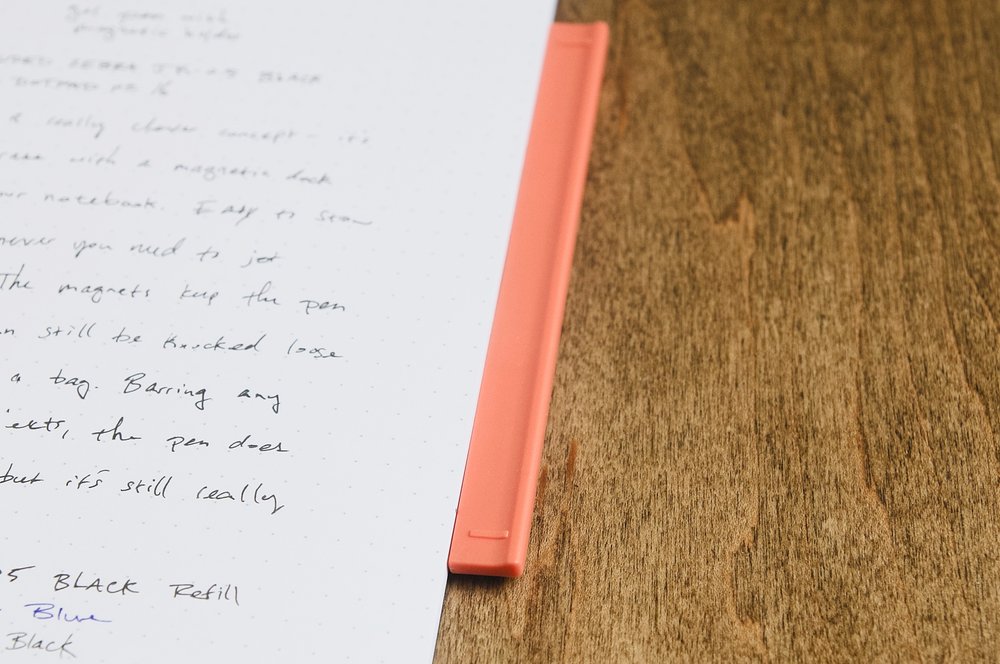 gel pen with
magnetic holder
ZEBRA JK-0.5 BLACK
a really clever concept - it's
with a magnetic dock
notebook. Easy to stow
never you need to jot
The magnets keep the pen
n still be knocked loose
a bag. Barring any
the pen does
but it's still really
5 BLACK Refill
Blue
Black